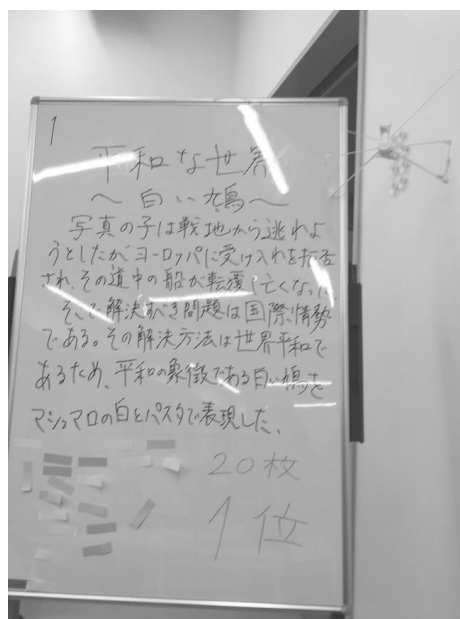 1
平和な世界
〜白い鳩〜
写真の子は戦地から逃れよ
うとしたがヨーロッパに受け入れを拒否
され、その道中の船が転覆し亡くなった。
そこで解決すべき問題は国際情勢
である。その解決方法は世界平和で
あるため、平和の象徴である白い鳩を
マシュマロの白とパスタで表現した。
20枚
1位